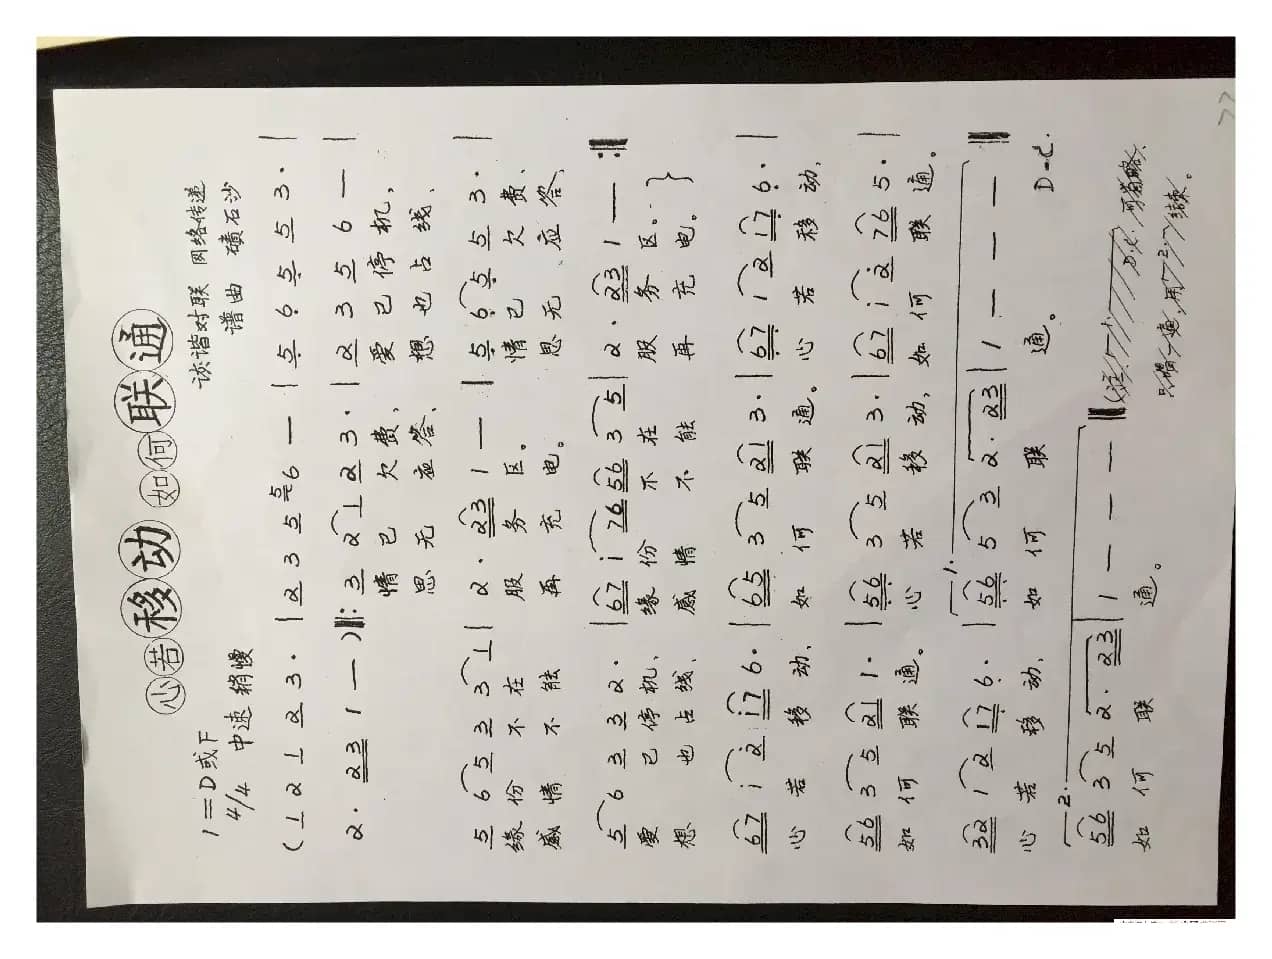 心若移动 如何联通
1=D或F
诙谐对联 网络传递
4/4 中速 稍慢
谱曲 碛石沙
(1 2 1 2 3· | 2 3 5 6 — | 5 6 5 5 3· |
2· 23 1 — )‖: 3 2 1 2 3· | 2 3 5 6 — |
情已欠费, 爱已停机,
思无应答, 想也占线、
5 6 5 3 3 1 | 2· 23 1 — | 5 6 5 5 3· |
缘份不在服务区。 情已欠费、
感情不能再充电。 思无应答、
5 6 3 3 2· | 67 i 76 56 3 5 | 2· 23 1 — :‖
爱已停机、 缘份不在服务区。
想也占线、 感情不能再充电。
67 i 2 i7 6· | 65 3 5 21 3· | 67 1 2 17 6· |
心若移动、 如何联通。 心若移动、
56 3 5 21 1· | 56 3 5 21 3· | 67 i 2 76 5· |
如何联通。 心若移动, 如何联通。
1.
32 1 2 17 6· | 56 5 3 2· 23 | 1 — — — ‖
心若移动、 如何联通。 D·C.
2.
56 3 5 2· 23 | 1 — — — ‖
如何联通。
D.C,可省略、
只唱一遍,用2.结束。